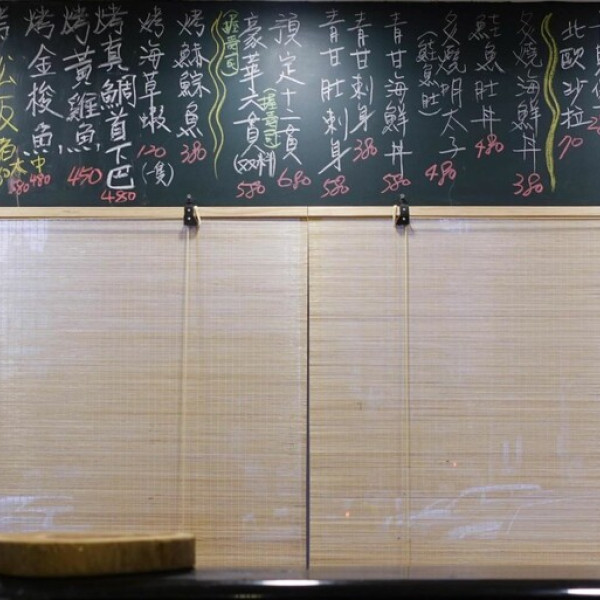 北歐沙拉
70
炙燒海鮮丼
380
鮭魚肚丼
480
炙燒明太子
(鮭魚肚)
480
青甘海鮮丼
580
青甘刺身
380
青甘肚刺身
580
預定十二貫
(握壽司)
680
豪華六貫(双料)
(握壽司)
580
烤 魚
380
烤海草蝦
120
(一隻)
烤真鯛首下巴
480
烤黃雞魚
450
烤金梭魚
480
大中